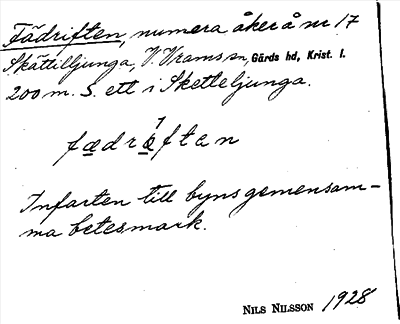 Fädriften, numera åker å nr 17
Skättilljunga, V. Vrams sn, Gärds hd, Krist. l.
200 m. S. ett i Sketteljunga.
fædrǝften
Infarten till byns gemensam-
ma betesmark.
NILS NILSSON 1928